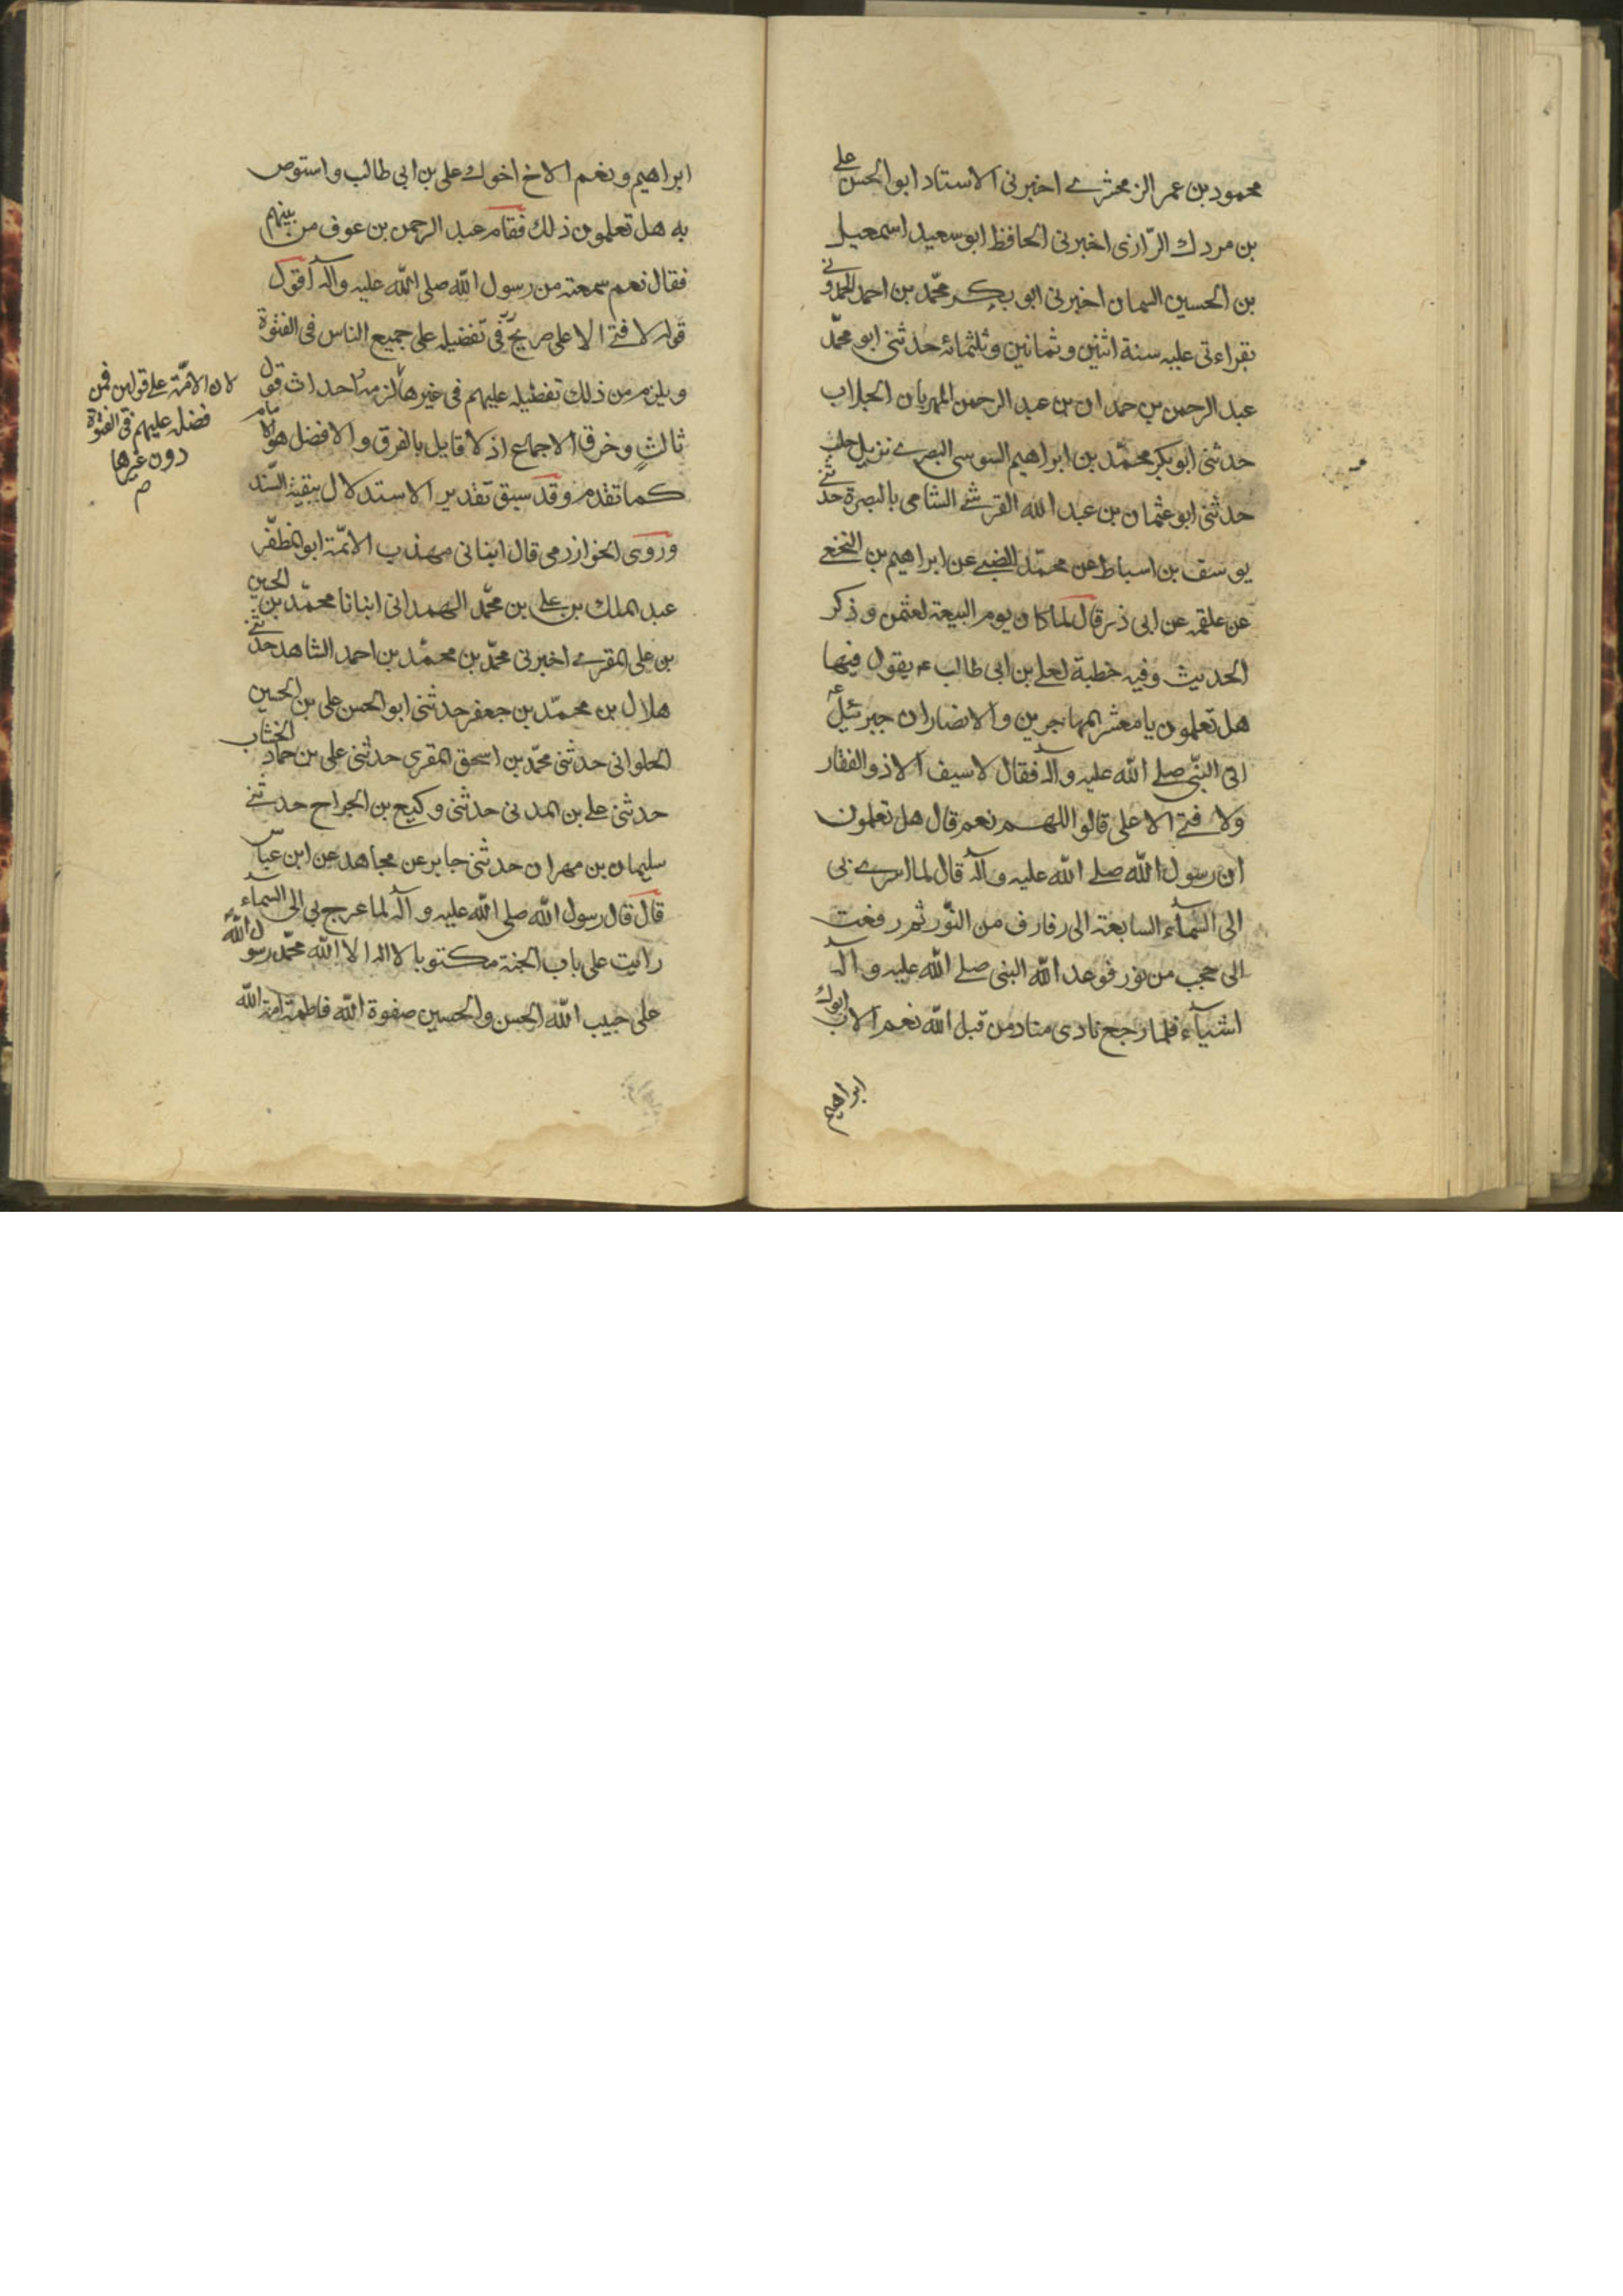 محمود بن عمر الزمخشرے اخبرنی الاستاد ابو الحسن علے
بن مردك الرّازی اخبرنی الحافظ ابو سعید اسمعیل
بن الحسین السمان اخبرنی ابو بکر محمّد بن احمد
بقراءتی علیه سنة اثنین و ثمانین و ثلثمائة حدثنی ابو محمّد
عبد الرحمن بن حمدان بن عبد الرحمن المهربان الجلاب
حدثنی ابو بکر محمّد بن ابراهیم السوسی البصرے نزیل حلب
حدثنی ابو عثمان بن عبد الله القرشے الشامی بالبصرة حدثنے
یوسف بن اسباط عن محمّد الضبے عن ابراهیم بن النخعے
عن علقمه عن ابی ذر قال لما کان یوم البیعة لعثمن و ذکر
الحدیث وفیه خطبة لعلے بن ابی طالب ع یقول فیها
هل تعلمون یا معشر المهاجرین و الانصار ان جبرئیل ع
اتی النبّی صلے الله علیه وآله فقال لا سیف الا ذو الفقار
ولا فتے الا علی قالوا اللهم نعم قال هل تعلمون
ان رسول الله صلے الله علیه وآله قال لما اسرے بی
الی السّمآء السابعة الی رفارف من النّور ثم رفعت
الی حجب من نور فوعد الله النبی صلے الله علیه وآله
اشیآء فلما رجع نادی مناد من قبل الله نعم الاب ابوك
ابراهیم
ابراهیم و نعم الاخ اخوك علی بن ابی طالب و استوص
به هل تعلمون ذلك فقام عبد الرحمن بن عوف من بینهم
فقال نعم سمعته من رسول الله صلی الله علیه وآله اقول
قوله لا فتے الا علی صریح فی تفضیله علی جمیع الناس فی الفتوّة
و یلزم من ذلك تفضیله علیهم فی غیرها لزم احداث قول
ثالثٍ و خرق الاجماع اذ لا قایل بالفرق و الافضل هو الامام
کما تقدم و قد سبق تقدیر الاستدلال ببقیة السّند
و روی الخوارزمی قال انبانی مهذب الائمّة ابو المظفّر
عبد الملك بن علی بن محمّد الهمدانی انبانا محمّد بن الحسین
بن علی المقرے اخبرنی محمّد بن محمّد بن احمد الشاهد حدثنے
هلال بن محمّد بن جعفر حدثنی ابو الحسن علی بن الحسین
الحلوانی حدثنی محمّد بن اسحق المقری حدثنی علی بن حماد الخشاب
حدثنی علے بن المدنی حدثنی وکیع بن الجراح حدثنے
سلیمان بن مهران حدثنی جابر عن مجاهد عن ابن عباس
قال قال رسول الله صلی الله علیه وآله لما عرج بی الی السماء
رایت علی باب الجنة مکتوبا لا اله الا الله محمّد رسول الله
علی حبیب الله الحسن والحسین صفوة الله فاطمة امة الله
لان الامّة علے قولین فمن
فضله علیهم فی الفتوّة
دون غیرها